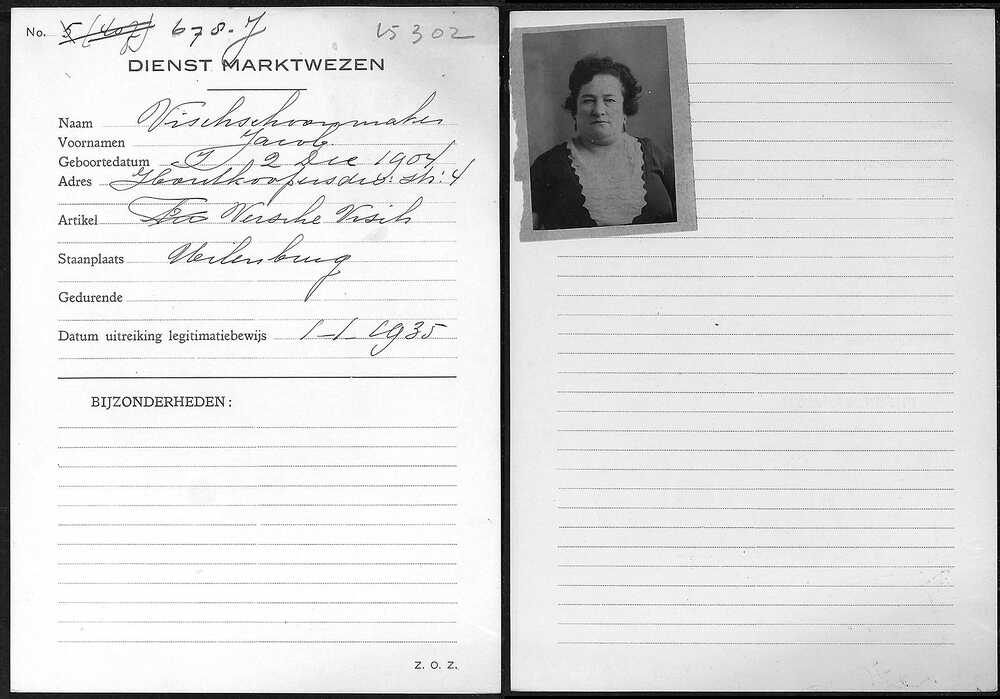 No. 5 (40j) 678. J 15302
DIENST MARKTWEZEN
Naam Vischschoonmaker
Voornamen Jacob
Geboortedatum 2 Dec 1904
Adres Houtkoopersdw: str: 4
Artikel Versche Visch
Staanplaats Uilenburg
Gedurende
Datum uitreiking legitimatiebewijs 1-1-1935
BIJZONDERHEDEN:
Z. O. Z.